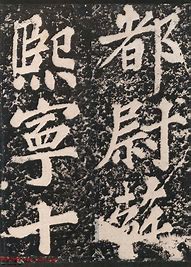 都尉蘇
熙寧十